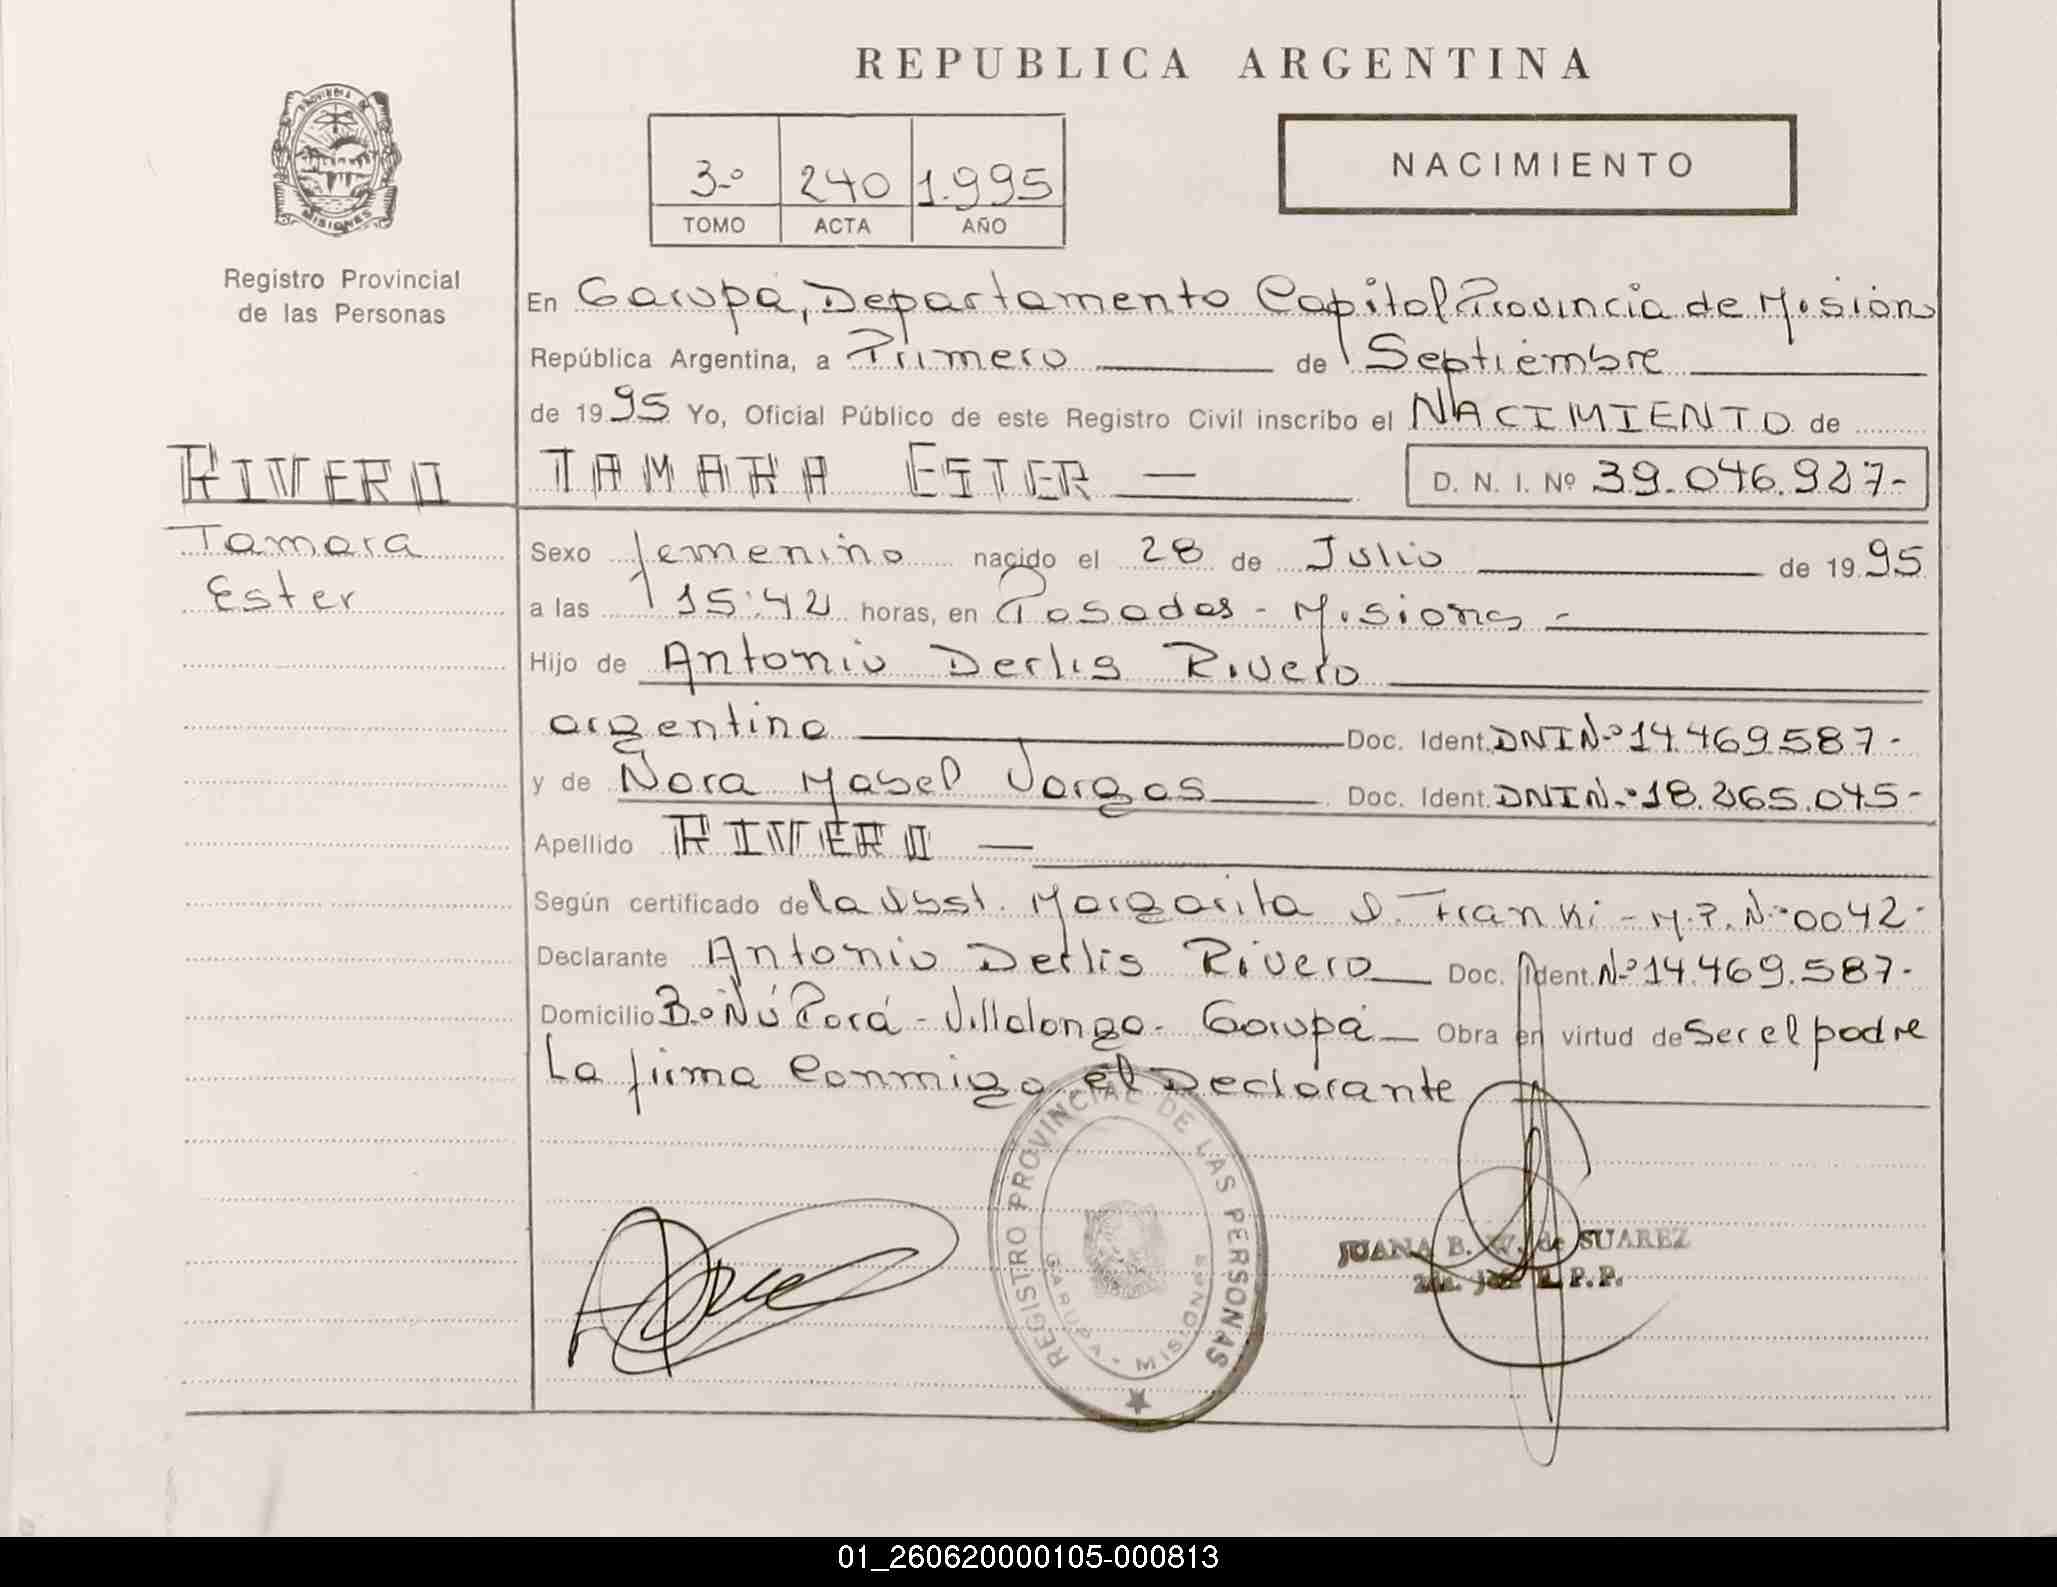 REPUBLICA ARGENTINA
PROVINCIA DE
MISIONES
Registro Provincial
de las Personas
3º 240 1.995
TOMO ACTA AÑO
NACIMIENTO
En Garupá, Departamento Capital Provincia de Mision
República Argentina, a Primero de Septiembre
de 1995 Yo, Oficial Público de este Registro Civil inscribo el NACIMIENTO de
RIVERO TAMARA ESTER — D. N. I. Nº 39.046.927-
Tamara
Ester
Sexo femenino nacido el 28 de Julio de 1995
a las 15:42 horas, en Posadas - Misiones -
Hijo de Antonio Derlis Rivero
argentino Doc. Ident. DNI Nº 14.469.587-
y de Nora Mabel Vargas Doc. Ident. DNI Nº 18.265.045-
Apellido RIVERO —
Según certificado de la Obst. Margarita D. Franki - M.P. Nº 0042-
Declarante Antonio Derlis Rivero Doc. Ident. Nº 14.469.587-
Domicilio Bº Ñú Porá - Villalonga - Garupá Obra en virtud de Ser el padre
La firma Conmigo el Declarante
REGISTRO PROVINCIAL DE LAS PERSONAS
GARUPA - MISIONES
JUANA B. W. de SUAREZ
R. P. P.
01_260620000105-000813